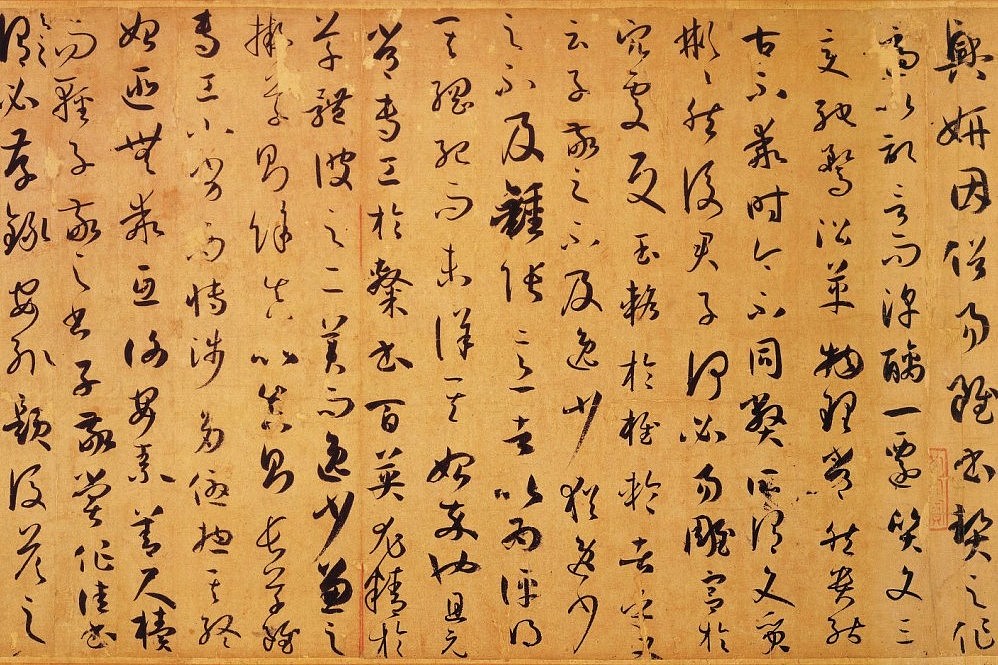 興妍因俗易雖書契之作
適以記言而淳醨一遷質文三
變馳騖沿革物理常然貴能
古不乖時今不同弊所謂文質
彬彬然後君子何必易雕宮於
穴處反玉輅於椎輪者乎又
云子敬之不及逸少猶逸少
之不及鍾張意者以為評得
其綱紀而未詳其始卒也且元
常專工於隸書百英尤精於
草體彼之二美而逸少兼之
擬草則餘真比真則長草雖
專工小劣而博涉多優摠其終
始匪無乖互謝安素善尺櫝
而輕子敬之書子敬嘗作佳書
謂必存錄安輒題後答之